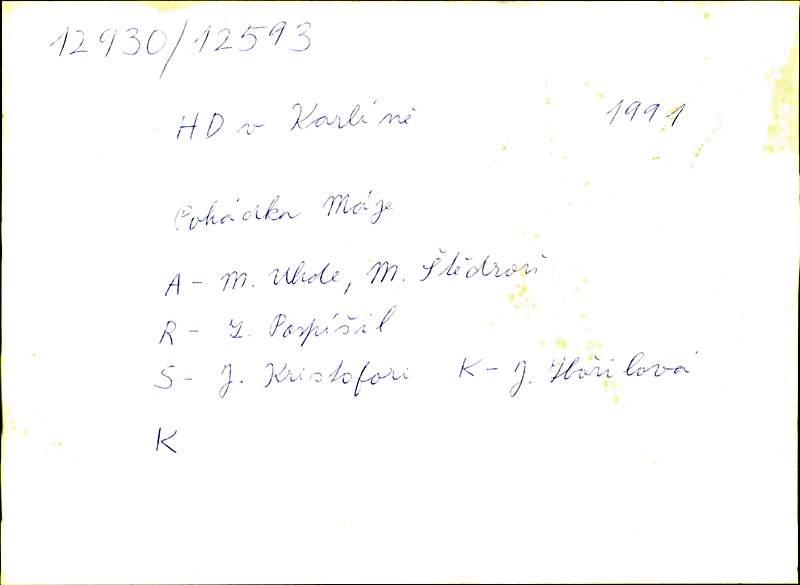 12930/12593
HD v Karlíně 1991
Pohádka Máje
A - M. Uhde, M. Štědroň
R - Z. Pospíšil
S - J. Kristofori K - J. Zbořilová
K